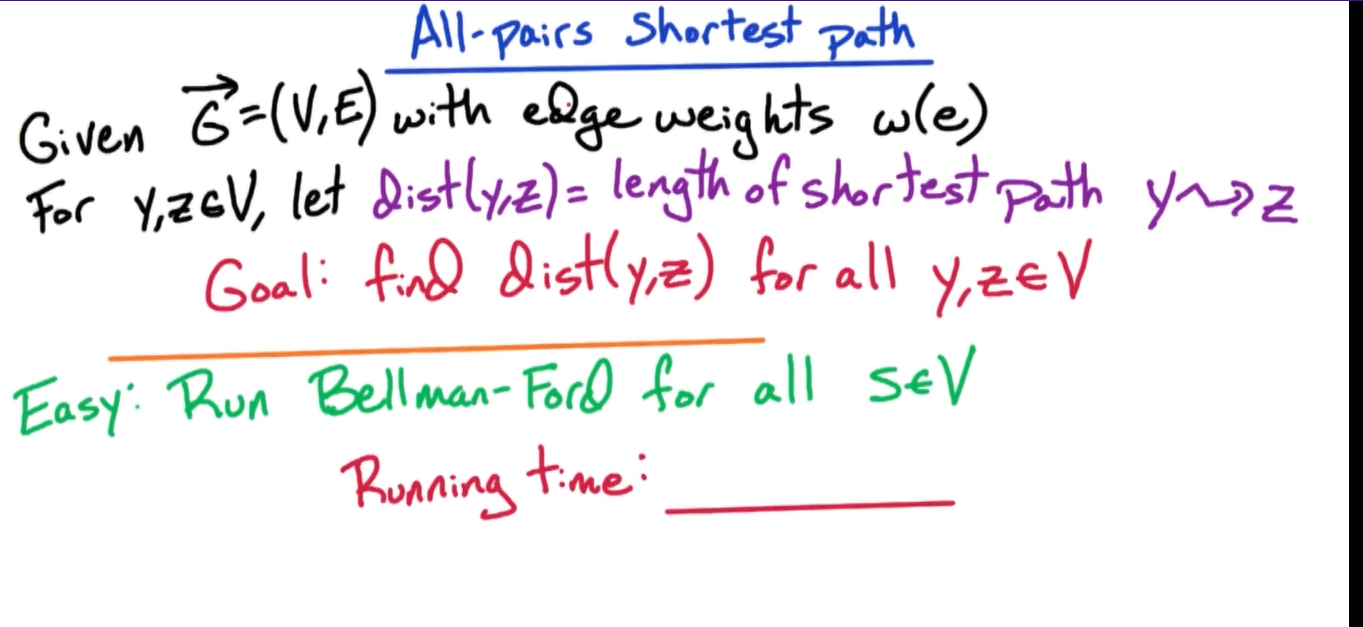 All-pairs Shortest path
Given G⃗=(V,E) with edge weights w(e)
For y,z∈V, let dist(y,z)= length of shortest path y⇝z
Goal: find dist(y,z) for all y,z∈V
Easy: Run Bellman-Ford for all s∈V
Running time: ________